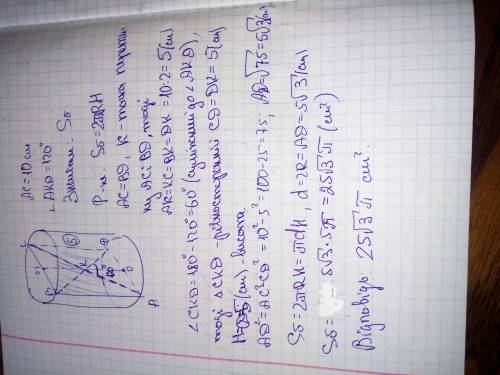 AC = 10 см
∠AKD = 120°
Знайти: Sб
Р-ня: Sб = 2πRH
AC = BD, K - точка перети-
ну AC і BD, тоді
AK = KC = BK = DK = 10:2 = 5 (см)
∠CKD = 180° - 120° = 60° (суміжний до ∠AKD),
тоді △CKD - рівносторонній CD = DK = 5 (см)
H = CD = 5 (см) - висота
AD² = AC² - CD² = 10² - 5² = 100 - 25 = 75; AD = √75 = 5√3 (см)
Sб = 2πRH = πdH, d = 2R = AD = 5√3 (см)
Sб = 5√3 · 5π = 25√3 π (см²)
Відповідь: 25√3 π см².